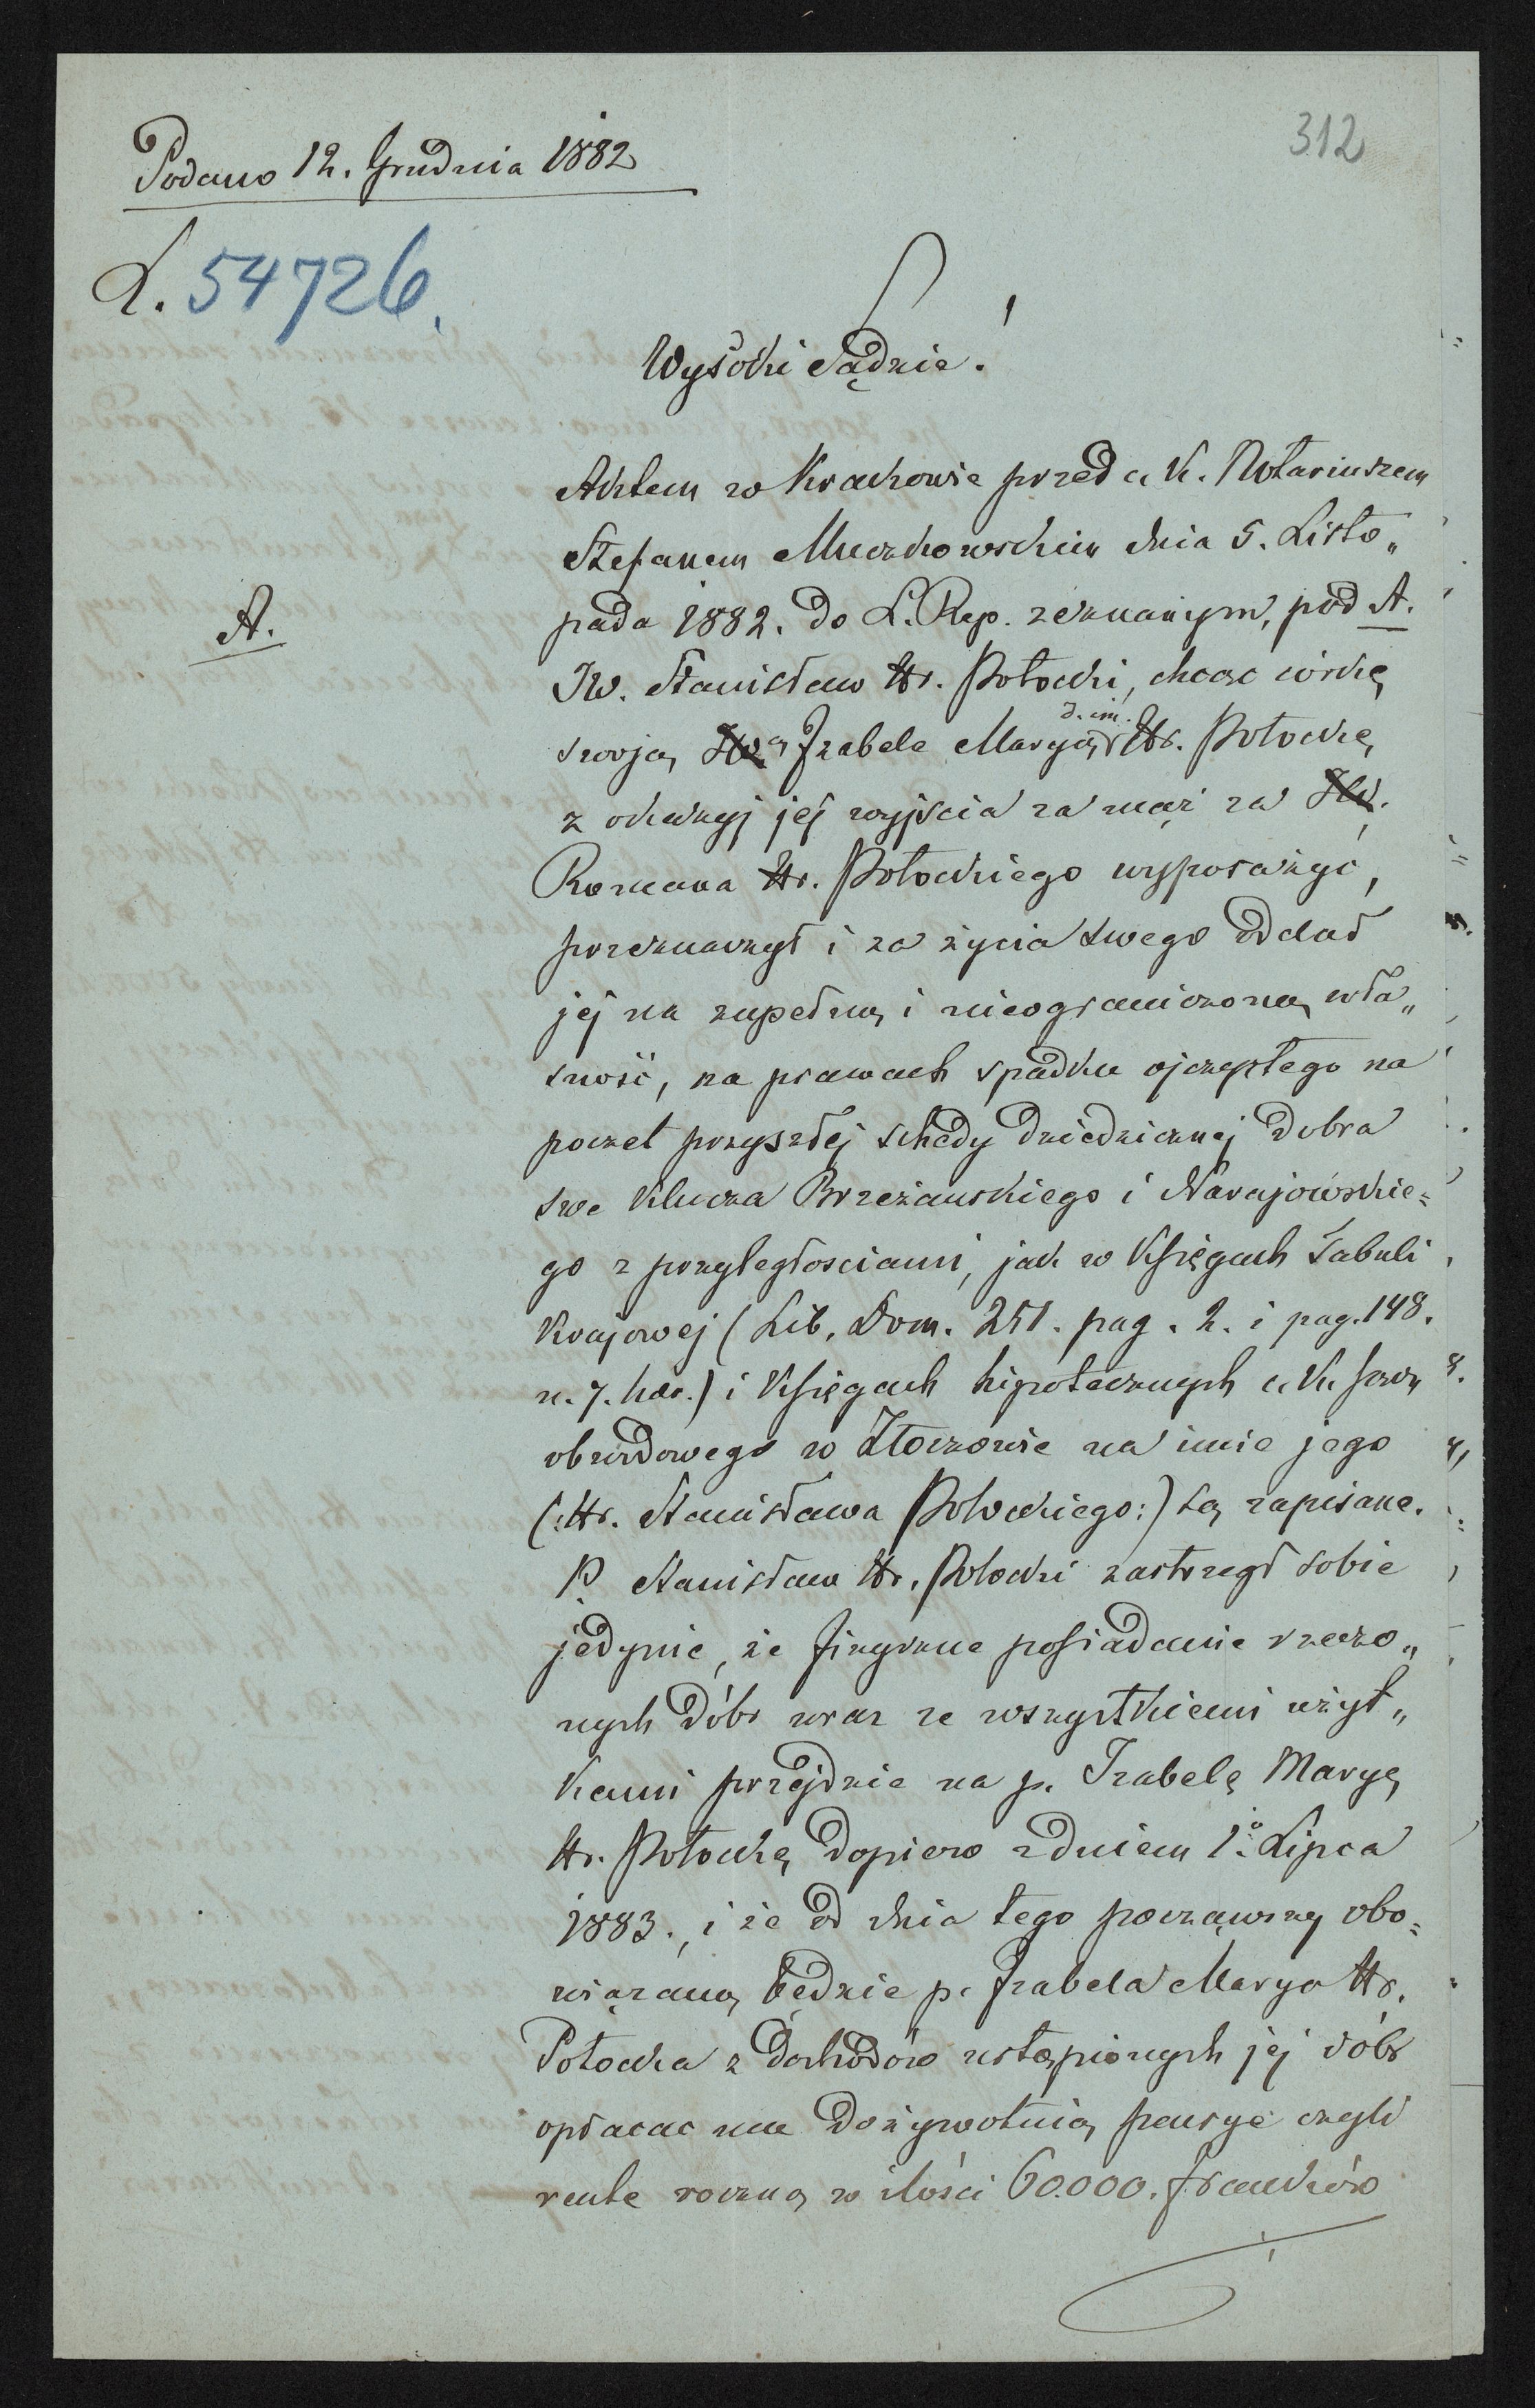 312
Podano 12. Grudnia 1882
L. 54726.
Wysoki Sądzie!
Aktem w Krakowie przed c. k. Notariuszem
Stefanem Muczkowskim dnia 5. Listo„
pada 1882. do L. Rep. zeznanym, pod A.
A.
JW. Stanisław Hr. Potocki, chcąc córkę
swoją Izabelę Maryą d. im. Hr. Potocką
z okazyj jej wyjścia za mąż za
Romana Hr. Potockiego wyposażyć,
przeznaczył i za życia swego oddał
jej na zupełną i nieograniczoną wła„
sność, na prawach spadku ojczystego na
poczet przyszłej schedy dziedzicznej dobra
swe klucza Brzeżanskiego i Narajowskie=
go z przyległosciami, jak w księgach Tabuli
krajowej (Lib. Dom. 251. pag. 2. i pag. 148.
n. 7. här.) i księgach hipotecznych c. k. Sądu
obwodowego w Złoczowie na imie jego
(: Hr. Stanisława Potockiego:) są zapisane.
P. Stanisław Hr. Potocki zastrzegł sobie
jedynie, że fizyczne posiadanie rzeczo„
nych dóbr wraz ze wszystkiemi użyt„
kami przejdzie na p. Izabelę Maryę
Hr. Potocką dopiero z dniem 1º Lipca
1883., i że od dnia tego począwszy obo=
wiązaną będzie p. Izabela Marya Hr.
Potocka z dochodów ustąpionych jej dóbr
opłacac mu dożywotnią pensye czyli
rentę roczną w ilości 60.000. franków